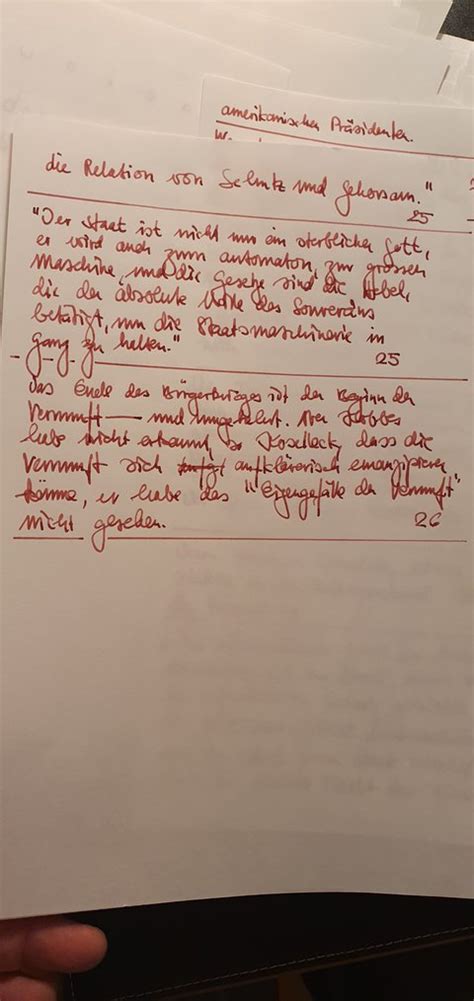 amerikanischen Präsidenten.
die Relation von Schutz und Gehorsam."
25
"Der Staat ist nicht nur ein sterblicher Gott,
er wird auch zum automaton, zur grossen
Maschine, und die Gesetze sind die Hebel,
die der absolute Wille des Souveräns
betätigt, um die Staatsmaschinerie in
Gang zu halten."
25
Das Ende des Bürgerkrieges ist der Beginn der
Vernunft — und umgekehrt. Aber Hobbes
habe nicht erkannt, so Koselleck, dass die
Vernunft sich aufklärerisch emanzipieren
könne, er habe das "Eigengefälle der Vernunft"
nicht gesehen.
26